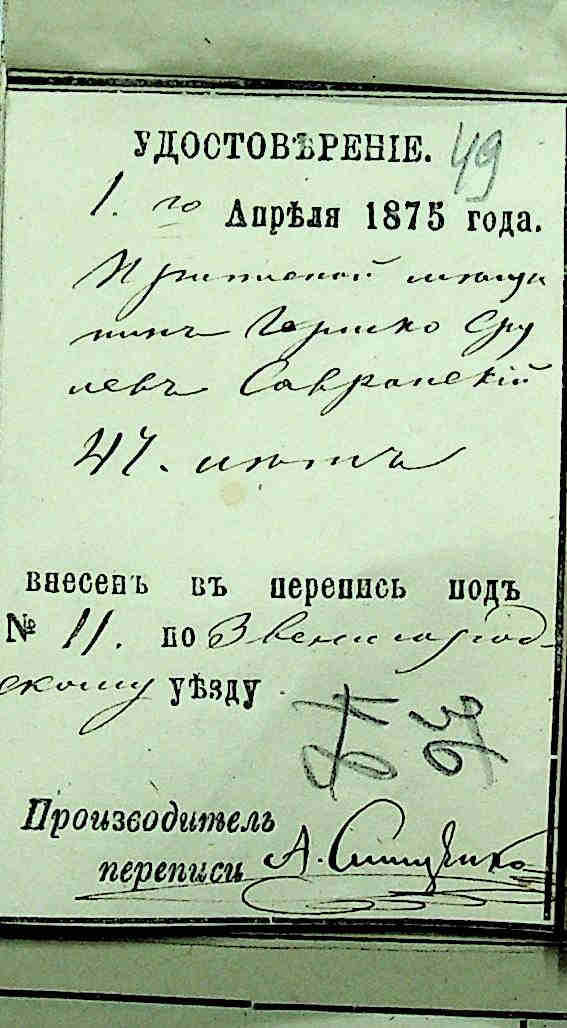 УДОСТОВѢРЕНІЕ. 49
1.го Апрѣля 1875 года.
мѣща
нинъ Гершко Сру
левъ Савранскій
47. лѣтъ
внесенъ въ перепись подъ
№ 11. по Звенигород-
скому уѣзду
Производитель
переписи А.